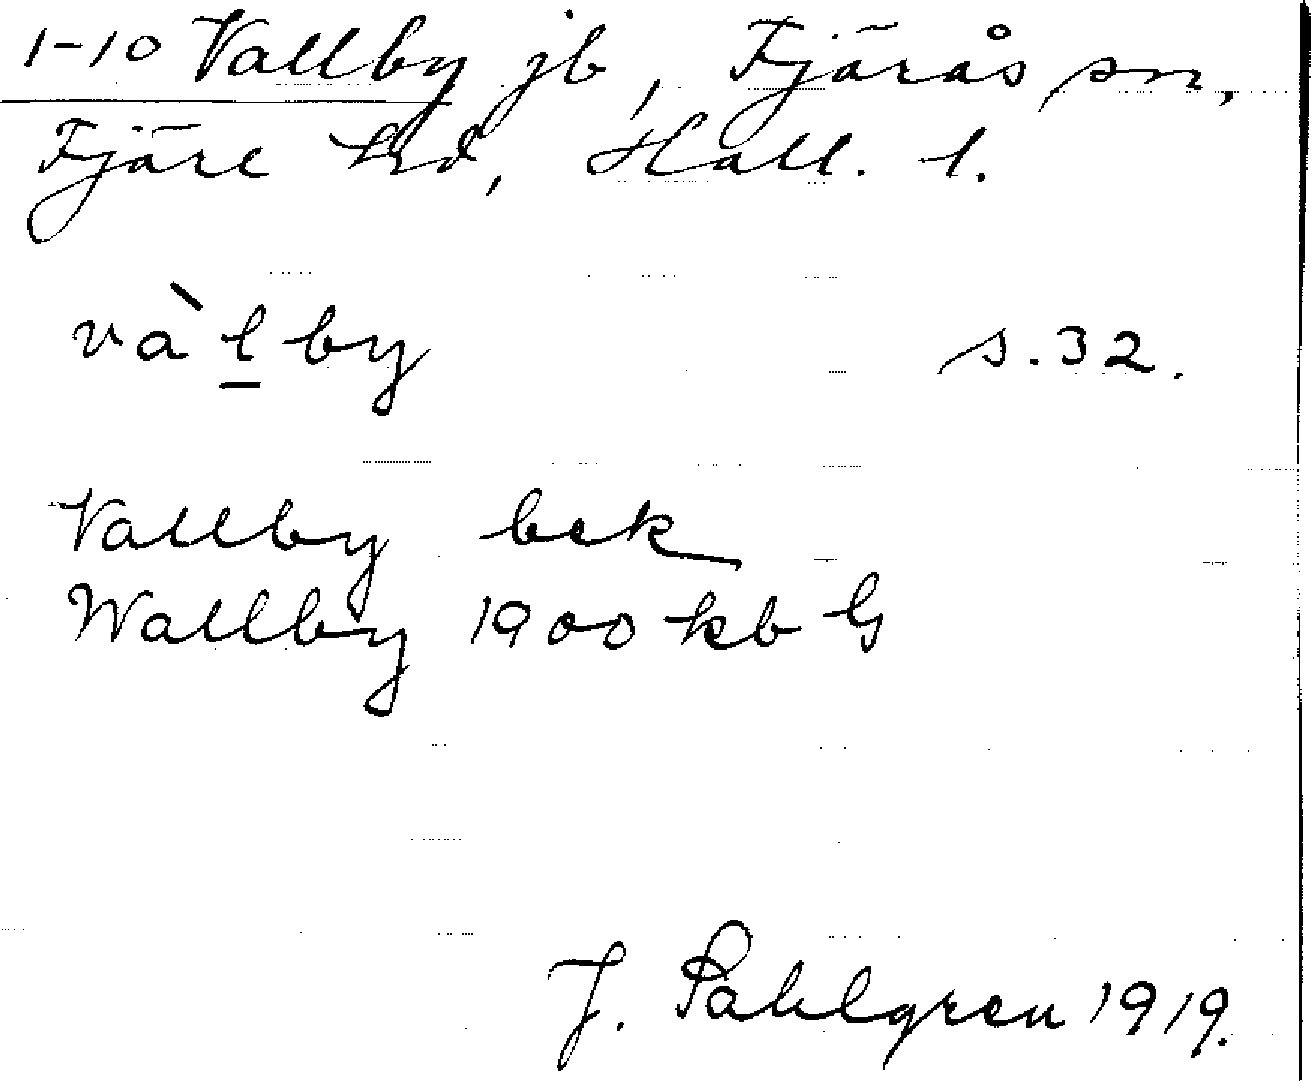 1-10 Vallby jb, Fjärås sn,
Fjäre hd, Hall. l.
vàl̲by s. 32.
Vallby bek
Wallby 1900 kb G
J. Sahlgren 1919.